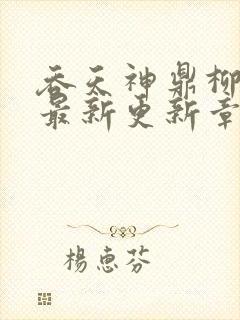 吞天神鼎柳
最新更新章
楊惠芬